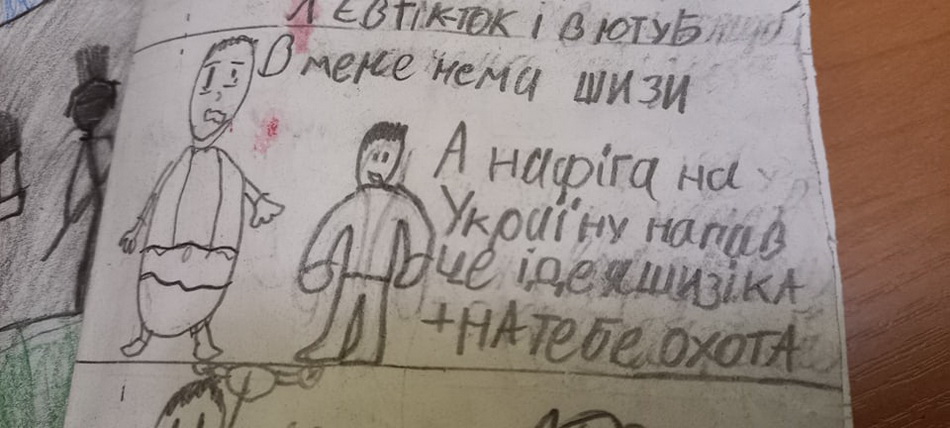 Є В ТІКТОК І В ЮТУБ
В мене нема шизи
А нафіга на
Україну напав
це ідея шизіка
+НА тебе ОХОТА